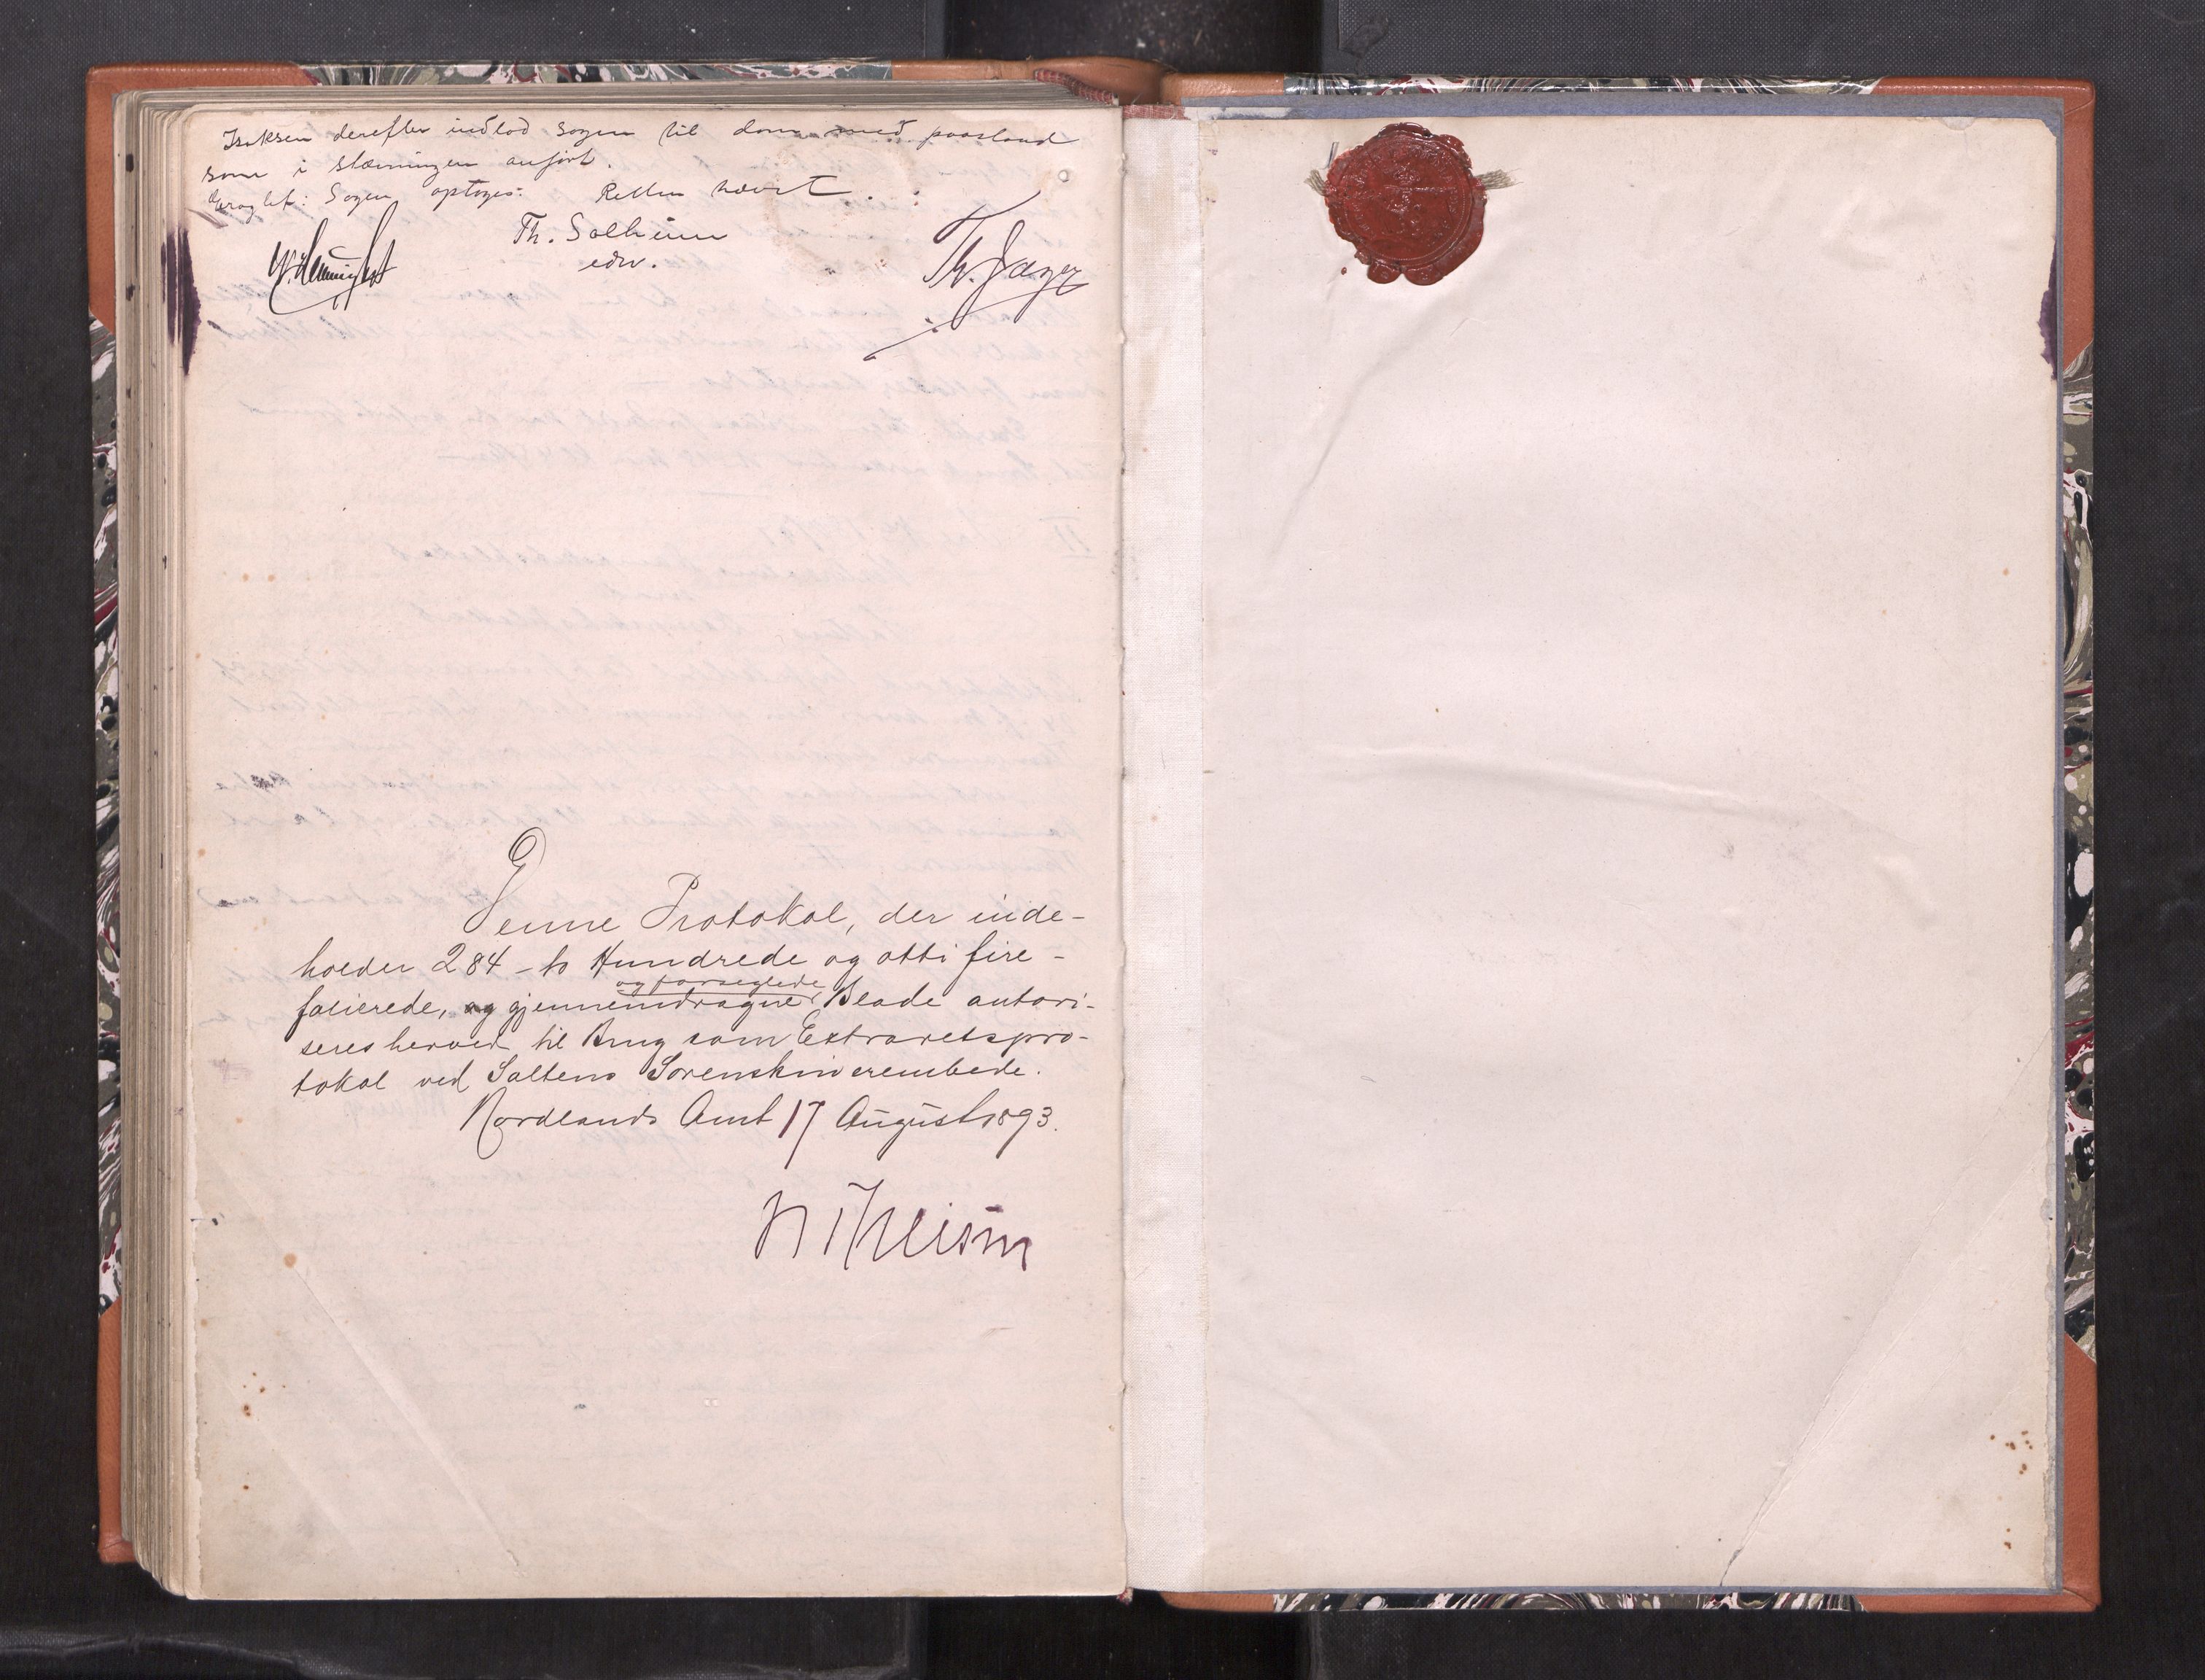 Isaksen derefter indlod sagen til dom med paastand
som i stævningen anført.
Eragtet: Sagen optages. Retten hævet.
Th. Solheim
edsv.
Th. Jæger
Denne Protokol, der inde-
holder 284 - to Hundrede og otti fire -
og forseglede
folierede, og gjennemdragne Blade autori-
seres herved til Brug som Extraretspro-
tokol ved Saltens Sorenskriverembede.
Nordlands Amt 17 August 1893.